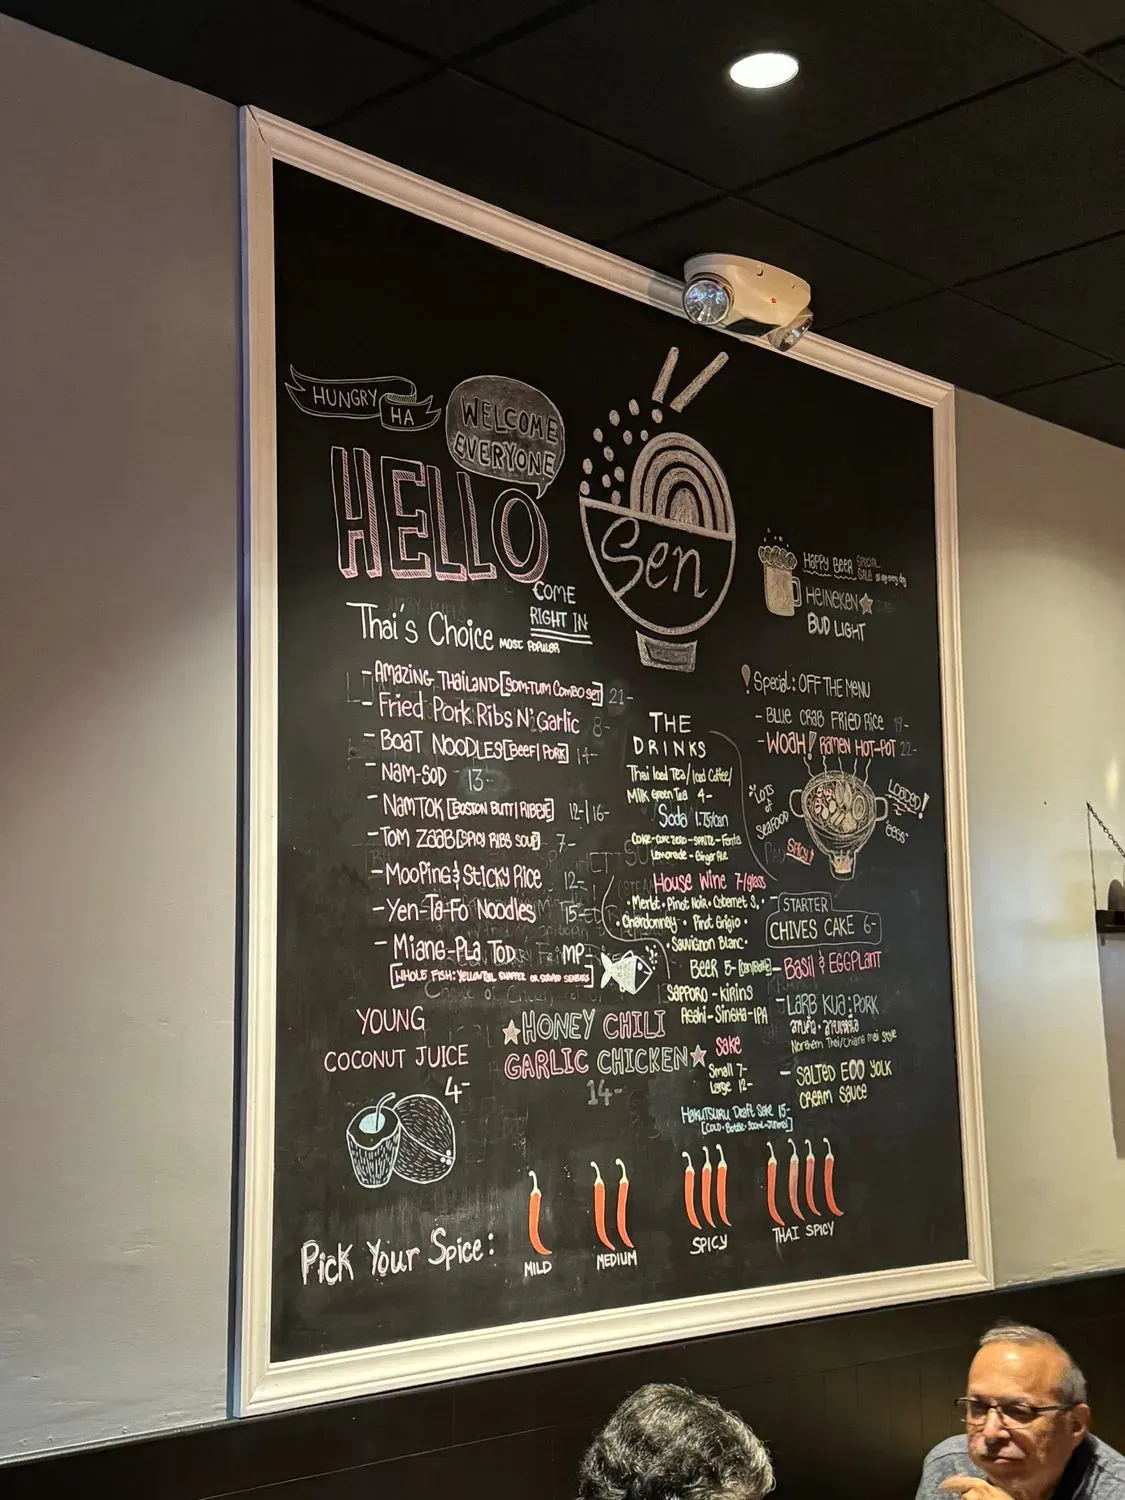 HUNGRY
HA
WELCOME
EVERYONE
HELLO
COME
RIGHT IN
Sen
HAPPY BEER SPECIAL
HEINEKEN
BUD LIGHT
Thai's Choice MOST POPULAR
- AMAZING THAILAND [SOM-TUM COMBO SET] 21-
- Fried Pork Ribs N' Garlic 8-
- BOAT NOODLES [BEEF | PORK] 14-
- NAM-SOD 13-
- NAMTOK [BOSTON BUTT | RIBEYE] 12-/16-
- TOM ZAAB [SPICY RIBS SOUP] 7-
- MOOPING & STICKY RICE 12-
- YEN-TA-FO NOODLES 15-
- MIANG-PLA TOD MP-
[WHOLE FISH: YELLOWTAIL SNAPPER OR
YOUNG
COCONUT JUICE
4-
HONEY CHILI
GARLIC CHICKEN
14-
THE
DRINKS
Thai Iced Tea/Iced Coffee/
Milk Green Tea 4-
Soda 1.75/can
COKE-COKE ZERO-SPRITE-Fanta
Lemonade-Ginger Ale
HOUSE WINE 7-/glass
• Merlot • Pinot Noir • Cabernet S. •
• Chardonnay • Pinot Grigio •
• Sauvignon Blanc •
BEER 5-
SAPPORO - KIRINS
Asahi-Singha-IPA
SAKE
Small 7-
Large 12-
HAKUTSURU Draft Sake 15-
! Special: OFF THE MENU
- BLUE CRAB FRIED RICE 19-
- WOAH! RAMEN HOT-POT 22-
"LOTS
OF
SEAFOOD
LOADED!
"EGGS"
SPICY!
- STARTER
CHIVES CAKE 6-
- BASIL & EGGPLANT
- LARB KUA: PORK
Northern Thai/Chiang Mai Style
- SALTED EGG YOLK
CREAM SAUCE
Pick Your Spice:
MILD
MEDIUM
SPICY
THAI SPICY